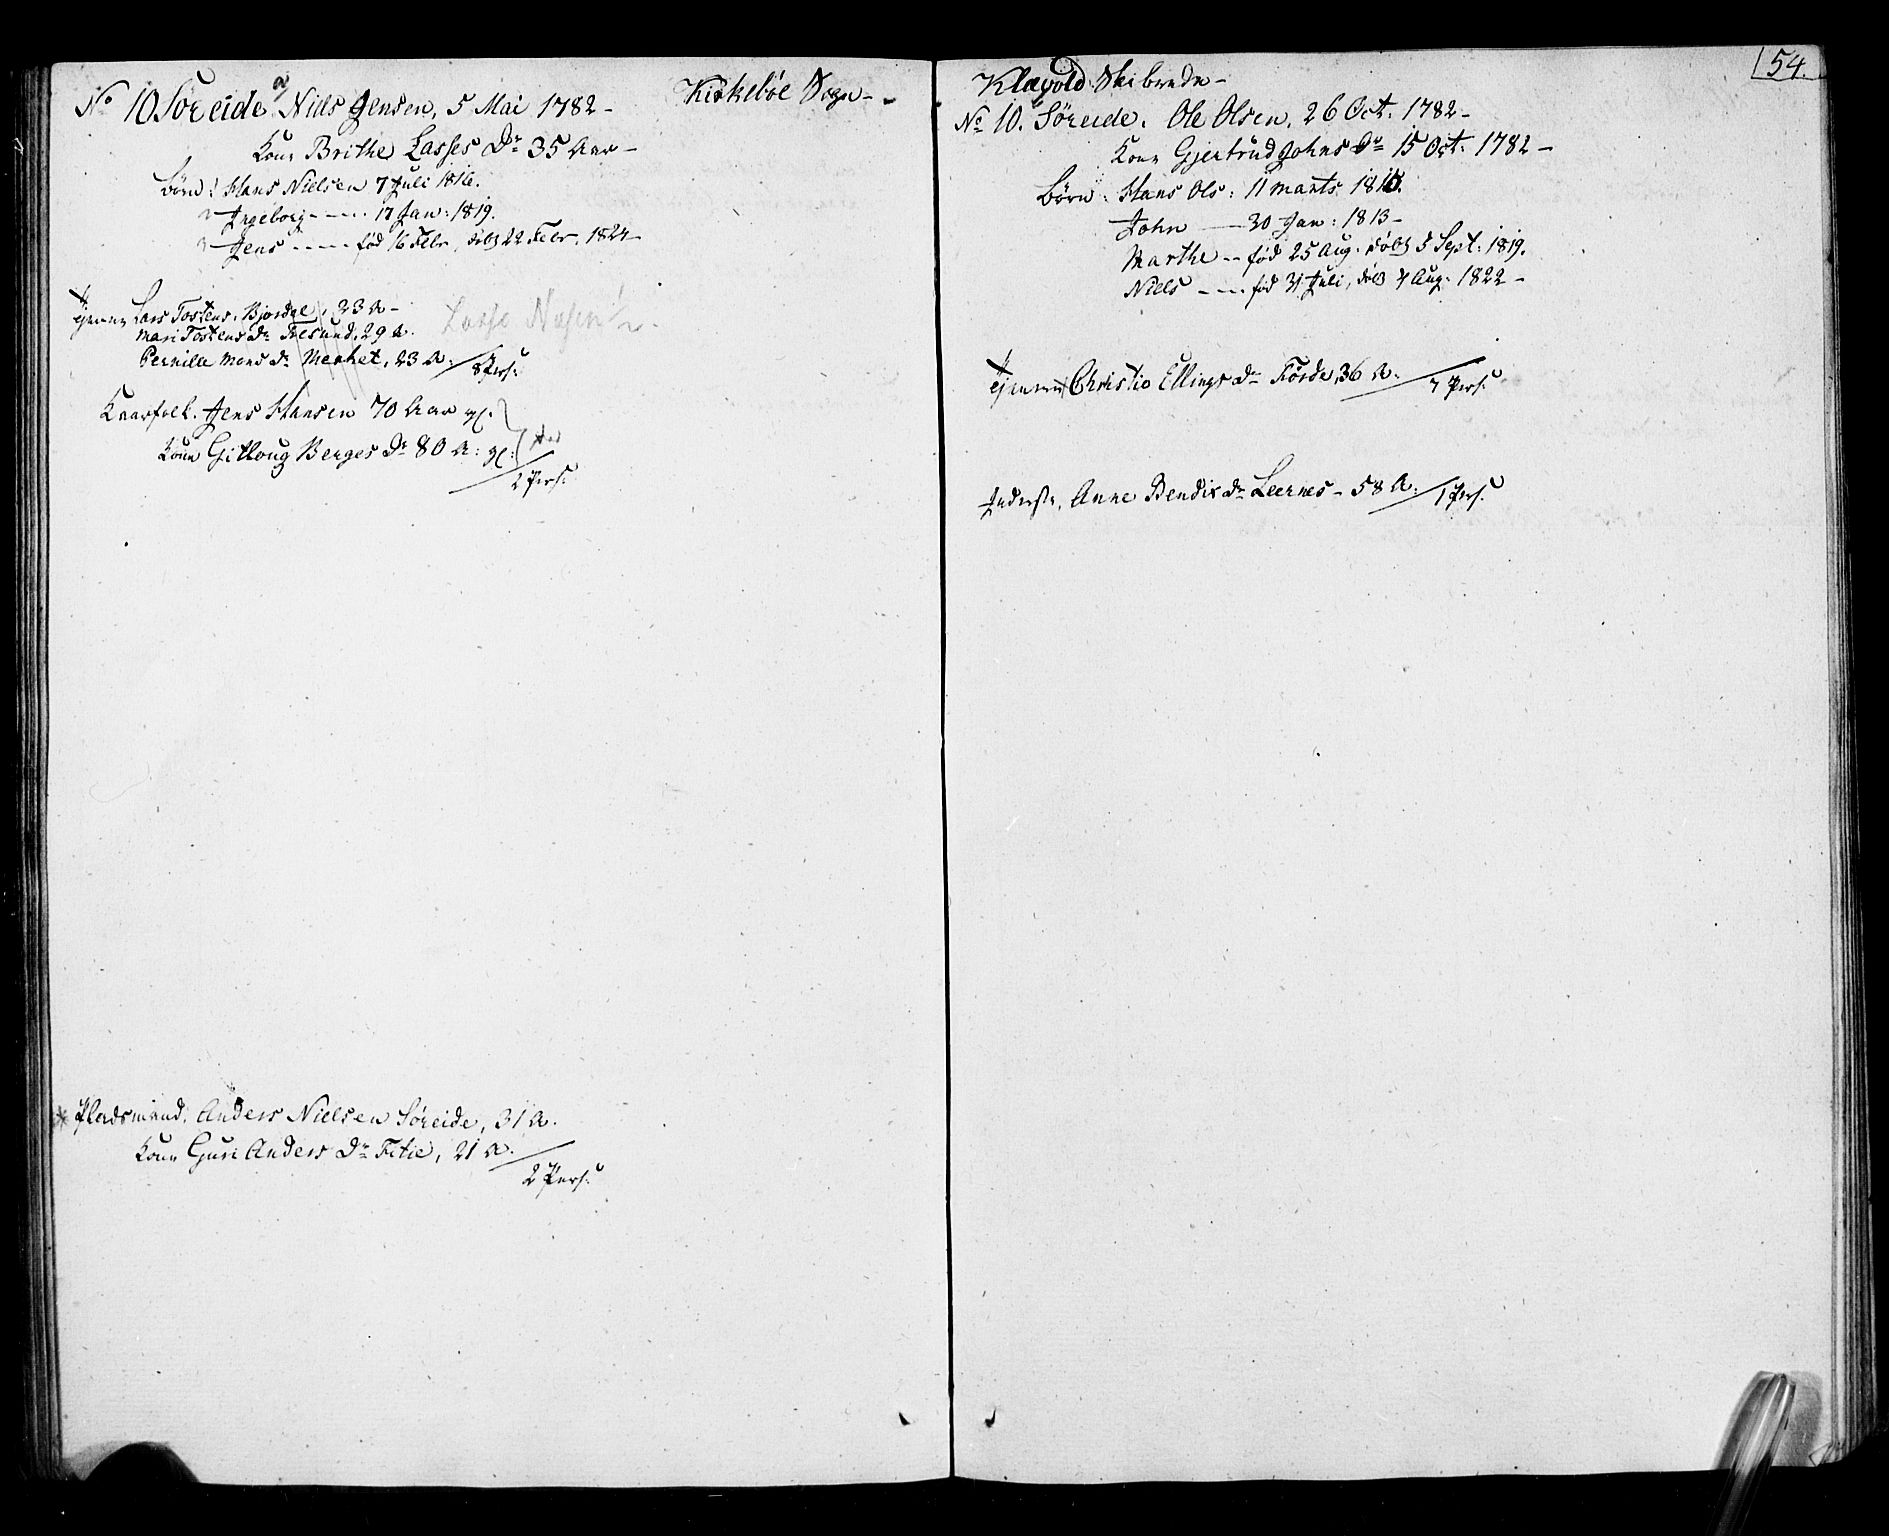 No 10 Søreide Niels Jensen, 5 Mai 1782 -
Kirkeböe Sogn -
Kone Brithe Lasses Dr 35 Aar -
Börn: Hans Nielsen 7 Juli 1816.
Ingeborg - - - . 17 Jan: 1819.
Jens - - - - - fød 16 Febr. döbt 22 Febr. 1824
Tjenere Lars Tostens. Bjordal, 33 A -
Mari Tostens Dr Tresund, 29 A.
Pernille Mons Dr Merket, 23 A.
8 Pers:
Lasse
Kaarfolk. Jens Hansen 70 Aar
Kone Gitloug Berges Dr 80 A:
2 Pers:
Pladsmand. Anders Nielsen Søreide, 31 A.
Kone Guri Anders Dr Fitie, 21 A.
2 Pers:
54.
Klævold Skibrede -
No 10. Søreide. Ole Olsen, 26 Oct. 1782 -
Kone Gjertrud Johns Dr 15 Oct. 1782 -
Börn: Hans Ols: 11 Marts
John - 30 Jan: 1813 -
Marthe - - fød 25 Aug. döbt 5 Sept: 1819.
Niels - - - . fød 31 Juli, döbt 4 Aug. 1822 -
Tjenere Christie Ellings Dr Förde, 36 A.
7 Pers:
Inderste, Anne Bendix Dr Leernes - 58 A.
1 Pers: